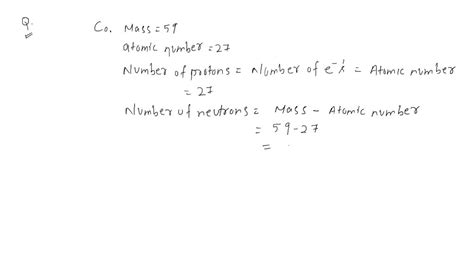 Q. Co. Mass = 59
atomic number = 27
Number of protons = Number of e⁻'s = Atomic number
= 27
Number of neutrons = Mass - Atomic number
= 59 - 27
=